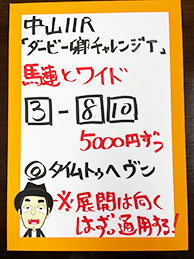 中山11R
「ダービー卿チャレンジT」
馬連とワイド
3-8 10
5000円ずつ
◎タイムトゥヘヴン
※展開は向く
はず。通用する!